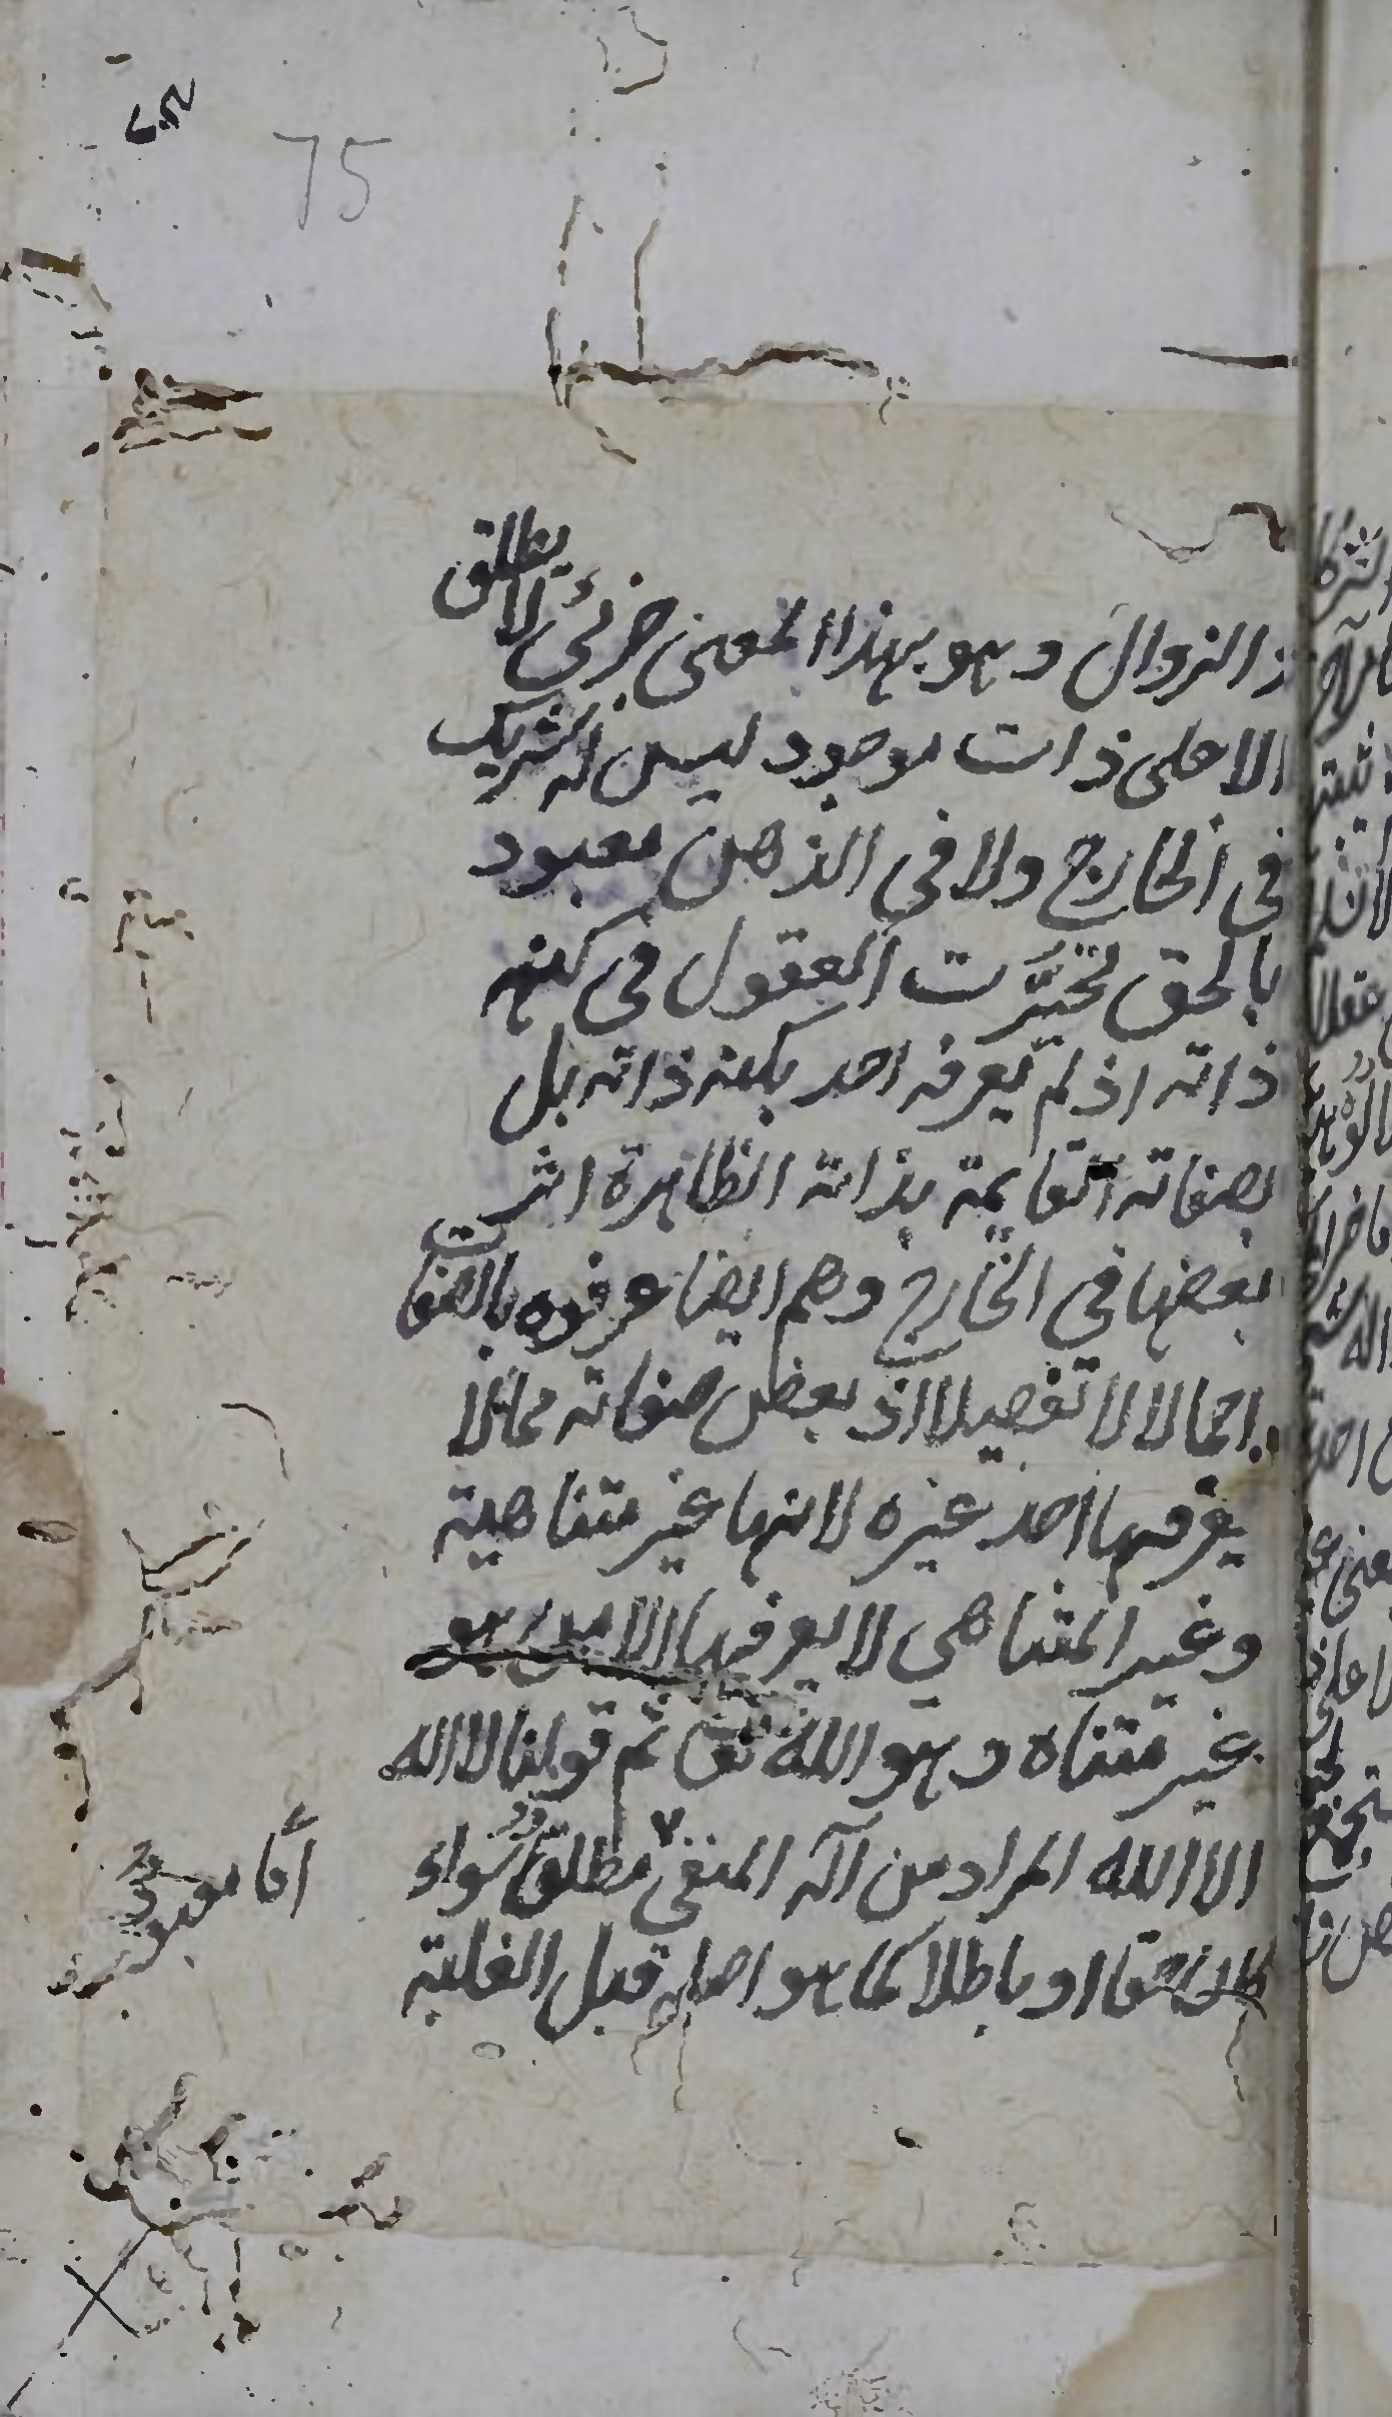 75
والزوال وهو بهذا المعنى جزئي لا يطلق
الا على ذات موجود ليس له شريك
في الخارج ولا في الذهن معبود
بالحق تحيَّرت العقول في كنه
ذاته اذ لم يعرفه احد بكنه ذاته بل
بصفاته القايمة بذاته الظاهرة اثر
بعضها في الخارج وهم ايضا عرفوه بالصفات
اجمالا لا تفصيلا اذ بعض صفاته مما لا
يعرفها احد غيره لانها غير متناهية
وغير المتناهي لا يعرفها الا من هو
غير متناه وهو الله تعالى ثم قولنا لا اله
الا الله المراد من اله المنفي مطلق سواء
كان حقا او باطلا كما هو اصله قبل الغلبة